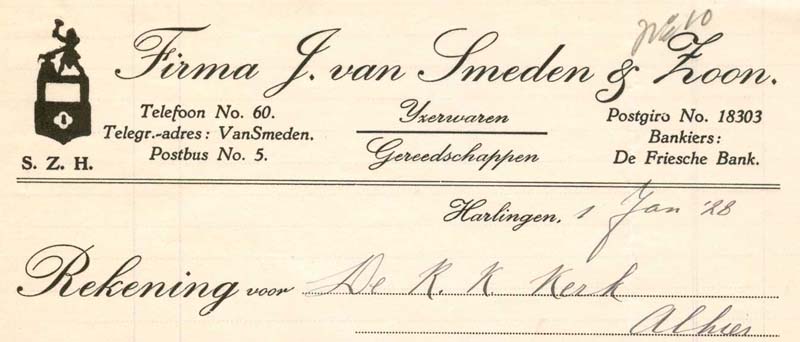 Firma J. van Smeden & Zoon.
Telefoon No. 60.
Telegr.-adres: VanSmeden.
Postbus No. 5.
S. Z. H.
Yzerwaren
Gereedschappen
Postgiro No. 18303
Bankiers:
De Friesche Bank.
Harlingen, 1 Jan '28
Rekening voor De R. K. Kerk
Alhier